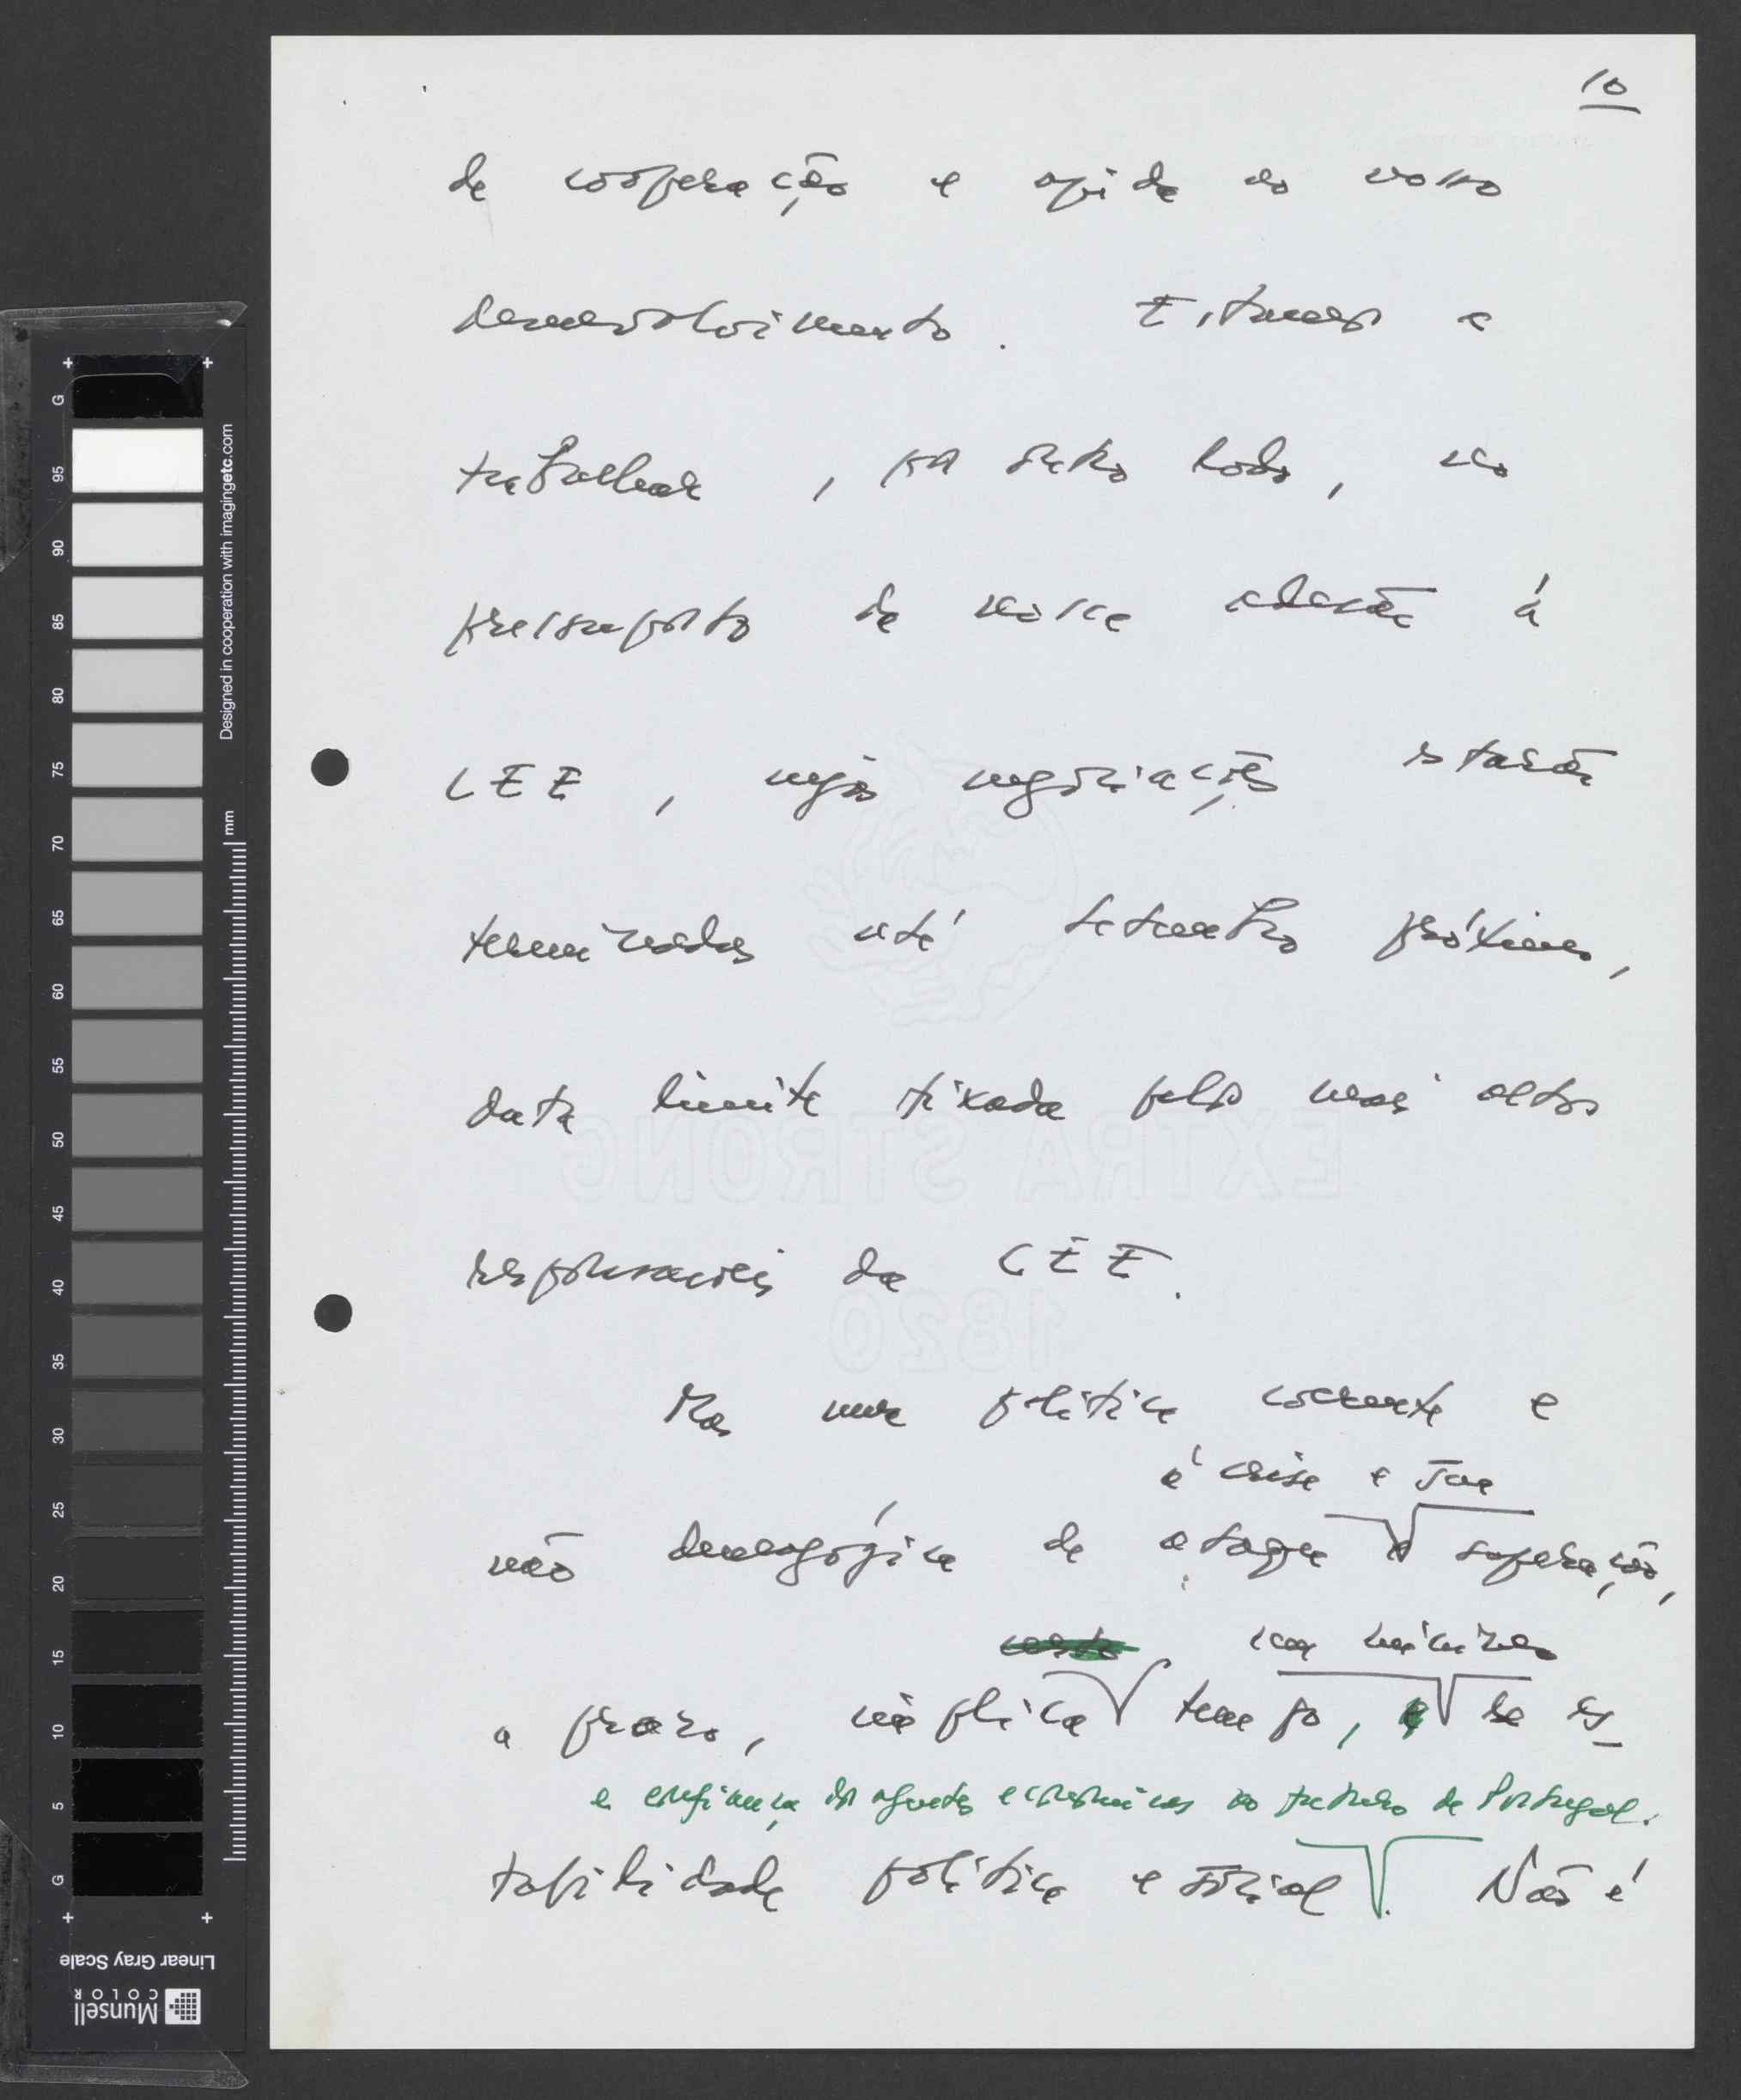 10
de cooperação e ajuda ao nosso
desenvolvimento. Estamos a
trabalhar, por outro lado, no
pressuposto da nossa adesão à
CEE, cujas negociações estarão
terminadas até setembro próximo,
data limite fixada pelos mais altos
responsáveis da CEE.
Mas uma política coerente e
é crise e sua
não demagógica de ataque superação,
a prazo, implica tempo, um mínimo
de es-
e confiança dos agentes económicos no futuro de Portugal.
tabilidade política e social. Não é
Designed in cooperation with imagingetc.com
mm
G 95 90 85 80 75 70 65 60 55 50 45 40 35 30 25 20 15 10 5 G
Linear Gray Scale
Munsell
COLOR
EXTRA STRONG
1820